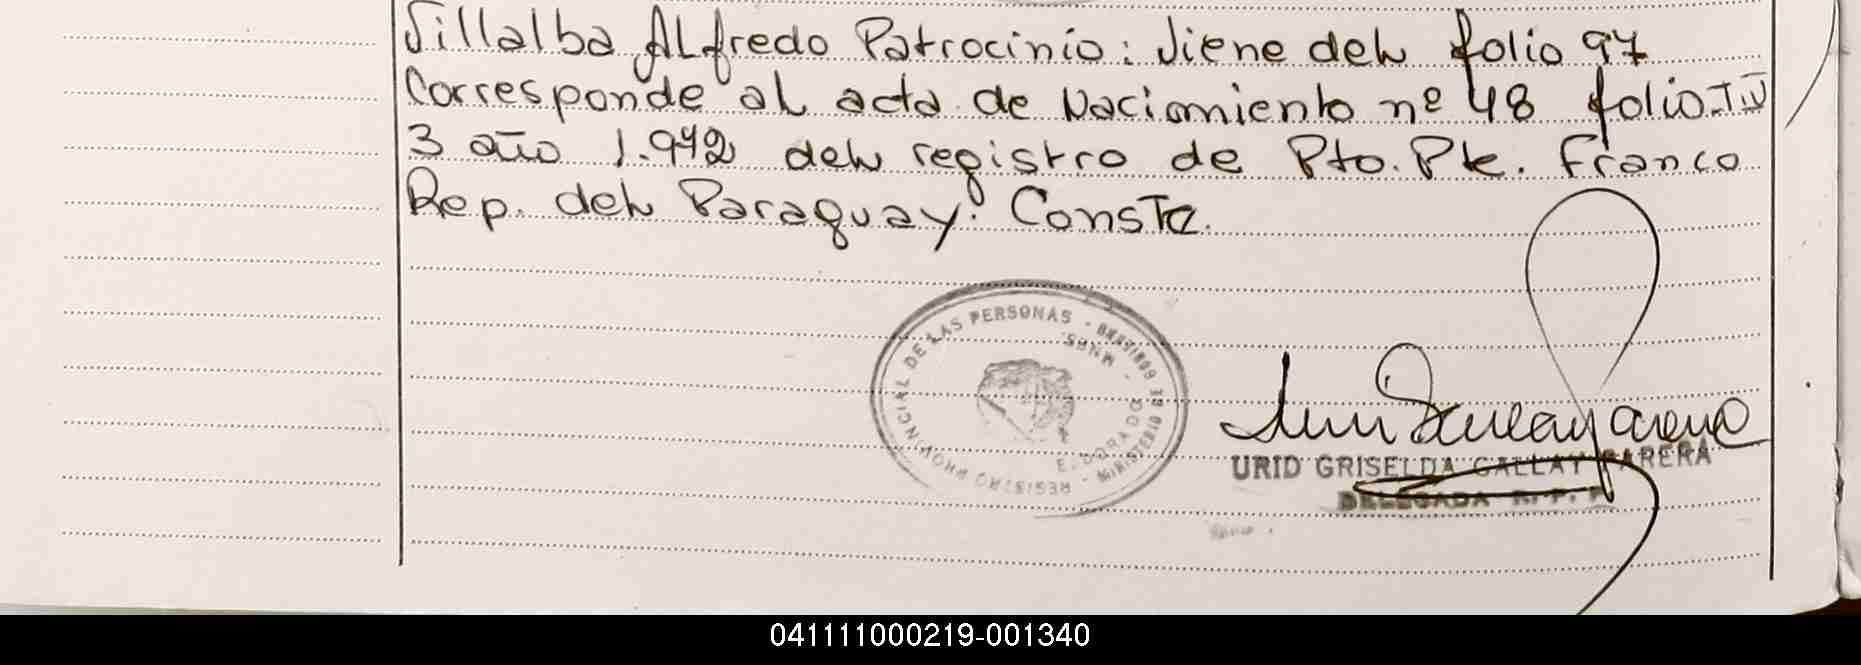 Villalba Alfredo Patrocinio: Viene del folio 97
Corresponde al acta de Nacimiento nº 48 folio IV
3 año 1.942 del registro de Pto. Pte. Franco
Rep. del Paraguay. Conste.
REGISTRO PROVINCIAL DE LAS PERSONAS - MINISTERIO DE GOBIERNO
ELDORADO - MNES.
URID GRISELDA GALLAY BARERA
DELEGADA R. P. P.
041111000219-001340